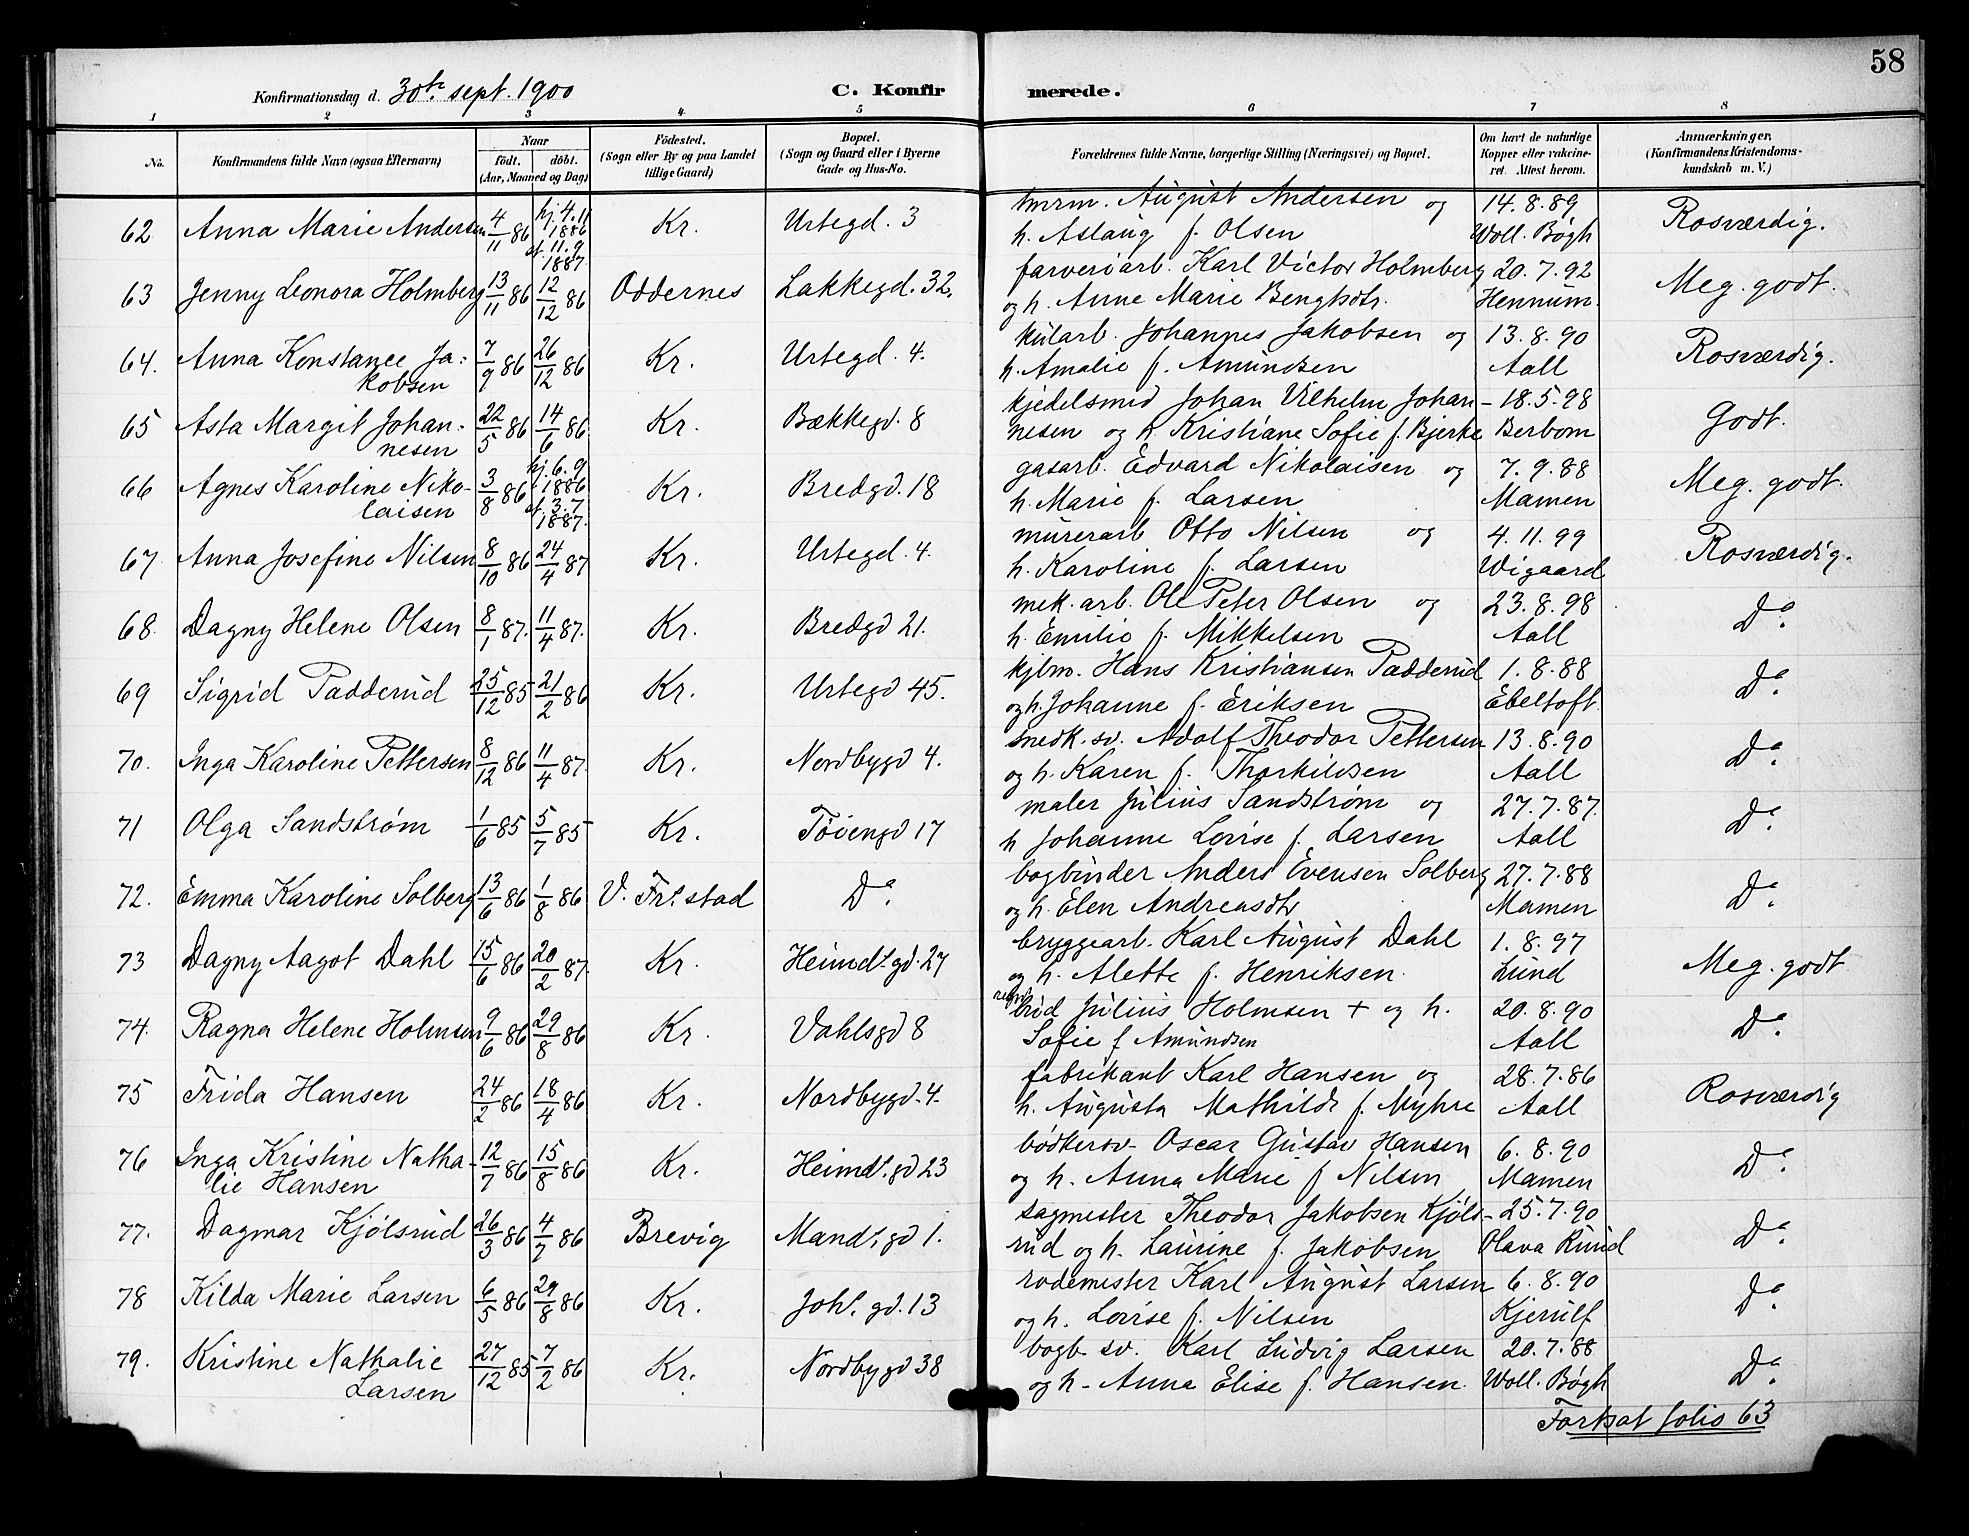 58
Konfirmationsdag d. 30te sept. 1900 C. Konfirmerede.
1 2 3 4 5 6 7 8
No. Konfirmandens fulde Navn (ogsaa Efternavn) Naar födt. döbt. (Aar, Maaned og Dag) Födested. (Sogn eller By og paa Landet tillige Gaard) Bopæl. (Sogn og Gaard eller i Byerne Gade og Hus-No. Forældrenes fulde Navne, borgerlige Stilling (Næringsvei) og Bopæl. Om havt de naturlige Kopper eller vakcineret. Attest herom. Anmærkninger. (Konfirmandens Kristendomskundskab m. V.)
62 Anna Marie Andersen 4/11 86 hj. 4.11 1886 st. 11.9 1887. Kr. Urtegd. 3 tmrm. August Andersen og 14.8.89 Rosværdig.
h. Aslaug f. Olsen Woll. Bøgh
63 Jenny Leonora Holmberg 13/11 86 12/12 86 Oddernes Lakkegd. 32. farveriarb. Karl Victor Holmberg 20.7.92 Meg. godt.
og h. Anne Marie Bengtsdtr. Hennum.
64. Anna Konstance Ja- 7/9 86 26/12 86 Kr. Urtegd. 4. kularb. Johannes Jakobsen og 13.8.90 Rosværdig.
kobsen h. Amalie f. Amundsen Aall
65 Asta Margit Johan- 22/5 86 14/6 86. Kr. Bækkegd. 8 kjedelsmed Johan Vilhelm Johan- 18.5.98 Godt.
nesen nesen og h. Kristiane Sofie f. Bjerke Berbom
66 Agnes Karoline Niko- 3/8 86 hj. 6.9 1886 st. 3.7 1887. Kr. Bredgd. 18 gasarb. Edvard Nikolaisen og 7.9.88 Meg. godt.
laisen h. Marie f. Larsen Mamen
67. Anna Josefine Nilsen 8/10 86 24/4 87 Kr. Urtegd. 4. murerarb Otto Nilsen og 4.11.99 Rosværdig.
h. Karoline f. Larsen Wigaard
68. Dagny Helene Olsen 8/1 87. 11/4 87. Kr. Bredgd 21. mek. arb. Ole Peter Olsen og 23.8.98 Do.
h. Emilie f. Mikkelsen Aall
69 Sigrid Padderud 25/12 85 21/2 86 Kr. Urtegd 45. kjbm. Hans Kristiansen Padderud 1.8.88 Do.
og h. Johanne f. Eriksen Ebeltoft.
70. Inga Karoline Pettersen 8/12 86 11/4 87. Kr. Nordbygd 4. snedk. sv. Adolf Theodor Pettersen 13.8.90 Do.
og h. Karen f. Thorkildsen Aall
71 Olga Sandstrøm 1/6 85 5/7 85 Kr. Tøiengd 17 maler Julius Sandstrøm og 27.7.87. Do.
h Johanne Lovise f. Larsen Aall
72. Emma Karoline Solberg 13/6 86 1/8 86 V. Fr. stad Do. bogbinder Anders Evensen Solberg 27.7.88 Do.
og h. Elen Andreasdtr Mamen
73 Dagny Aagot Dahl 15/6 86 20/2 87. Kr. Heimdt. gd. 27 bryggearb. Karl August Dahl 1.8.97 Meg. godt
og h. Alette f. Henriksen. Lund
74. Ragna Helene Holmsen 9/6 86 29/8 86 Kr. Vahlsgd 8 bud Julius Holmsen + og h. 20.8.90 Do.
Sofie f Amundsen Aall
75 Frida Hansen 24/2 86 18/4 86 Kr. Nordbygd. 4. fabrikant Karl Hansen og 28.7.86 Rosværdig
h. Augusta Mathilde f. Myhre Aall
76 Inga Kristine Natha- 12/7 86 15/8 86 Kr. Heimdt. gd 23 bødkersv. Oscar Gustav Hansen 6.8.90 Do.
lie Hansen og h. Anna Marie f Nilsen Mamen
77. Dagmar Kjölsrud 26/3 86 4/7 86 Brevig Mandt. gd 1. sagmester Theodor Jakobsen Kjöls- 25.7.90 Do.
rud og h. Laurine f. Jakobsen Olava Ruud
78 Kilda Marie Larsen 6/5 86 29/8 86 Kr. Joht. gd. 13 rodemester Karl August Larsen 6.8.90 Do.
og h. Lovise f. Nilsen Kjerulf
79. Kristine Nathalie 27/12 85 7/2 86 Kr. Nordbygd 38 bogb. sv. Karl Ludvig Larsen 20.7.88 Do.
Larsen og h. Anna Elise f. Hansen. Woll. Bøgh
Fortsat folio 63